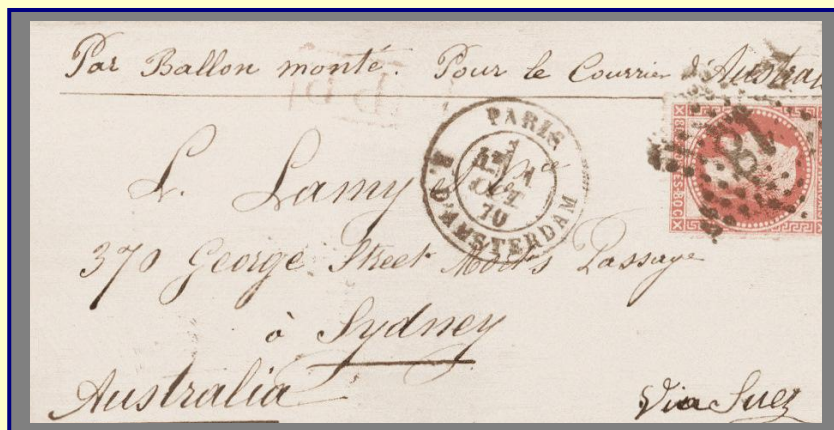 Par Ballon monté. Pour le Courrier d'Austra
PARIS
OCT
70
R. D'AMSTERDAM
18
L. Lamy et Cie
370 George Street Mort's Passage
à Sydney
Australia
Via Suez